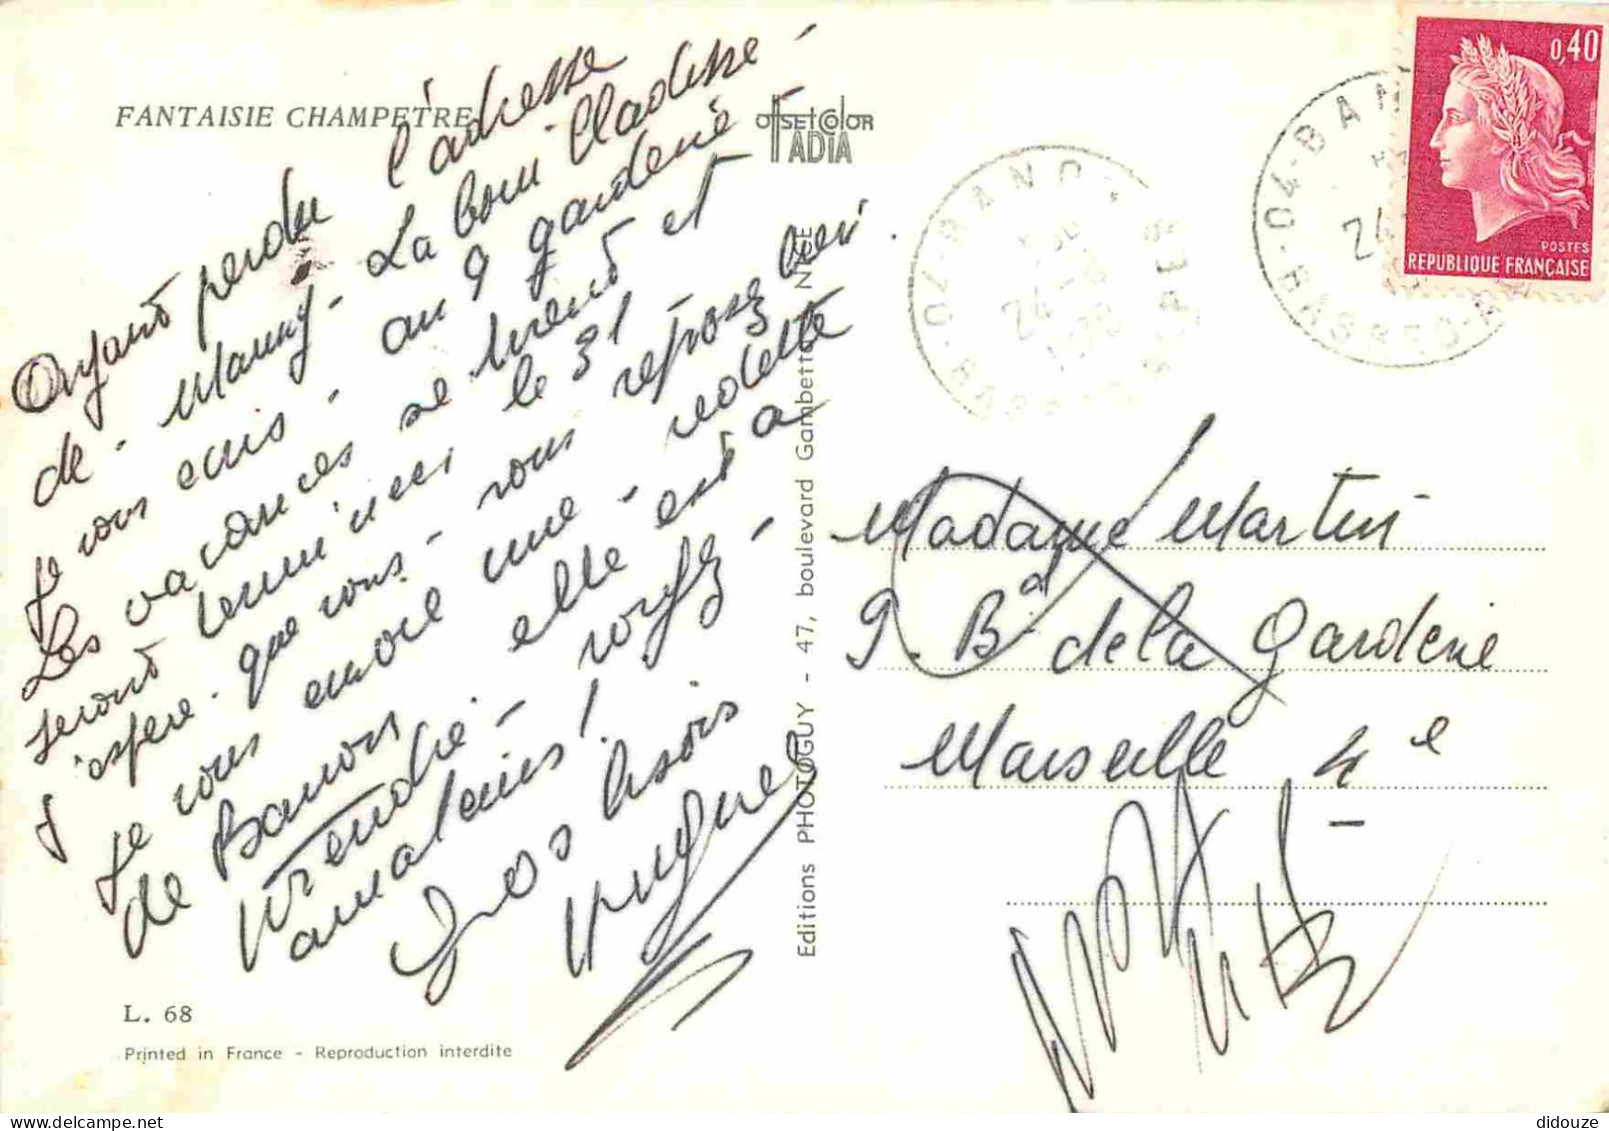 FANTAISIE CHAMPETRE
OFFSET COLOR
ADIA
Ayant perdu l'adresse
de - Manny - La bouilladisse -
je vous écris - au 9 gardène -
Les vacances se tirent et
seront terminées le 31
j'espère - que vous - vous reposez bien
Je vous envoie une - vedette
de Banon elle est à
vendre - voyez -
amateurs !
Gros bisous
Editions PHOTOGUY - 47, boulevard Gambetta - NICE
L. 68
Printed in France - Reproduction interdite
04 - BANON
BASSES-ALPES
24-8
1970
04 - BAN
BASSES-A
24
0,40
POSTES
REPUBLIQUE FRANÇAISE
Madame Martin
9. Bd de la Gardène
Marseille 4e
didouze